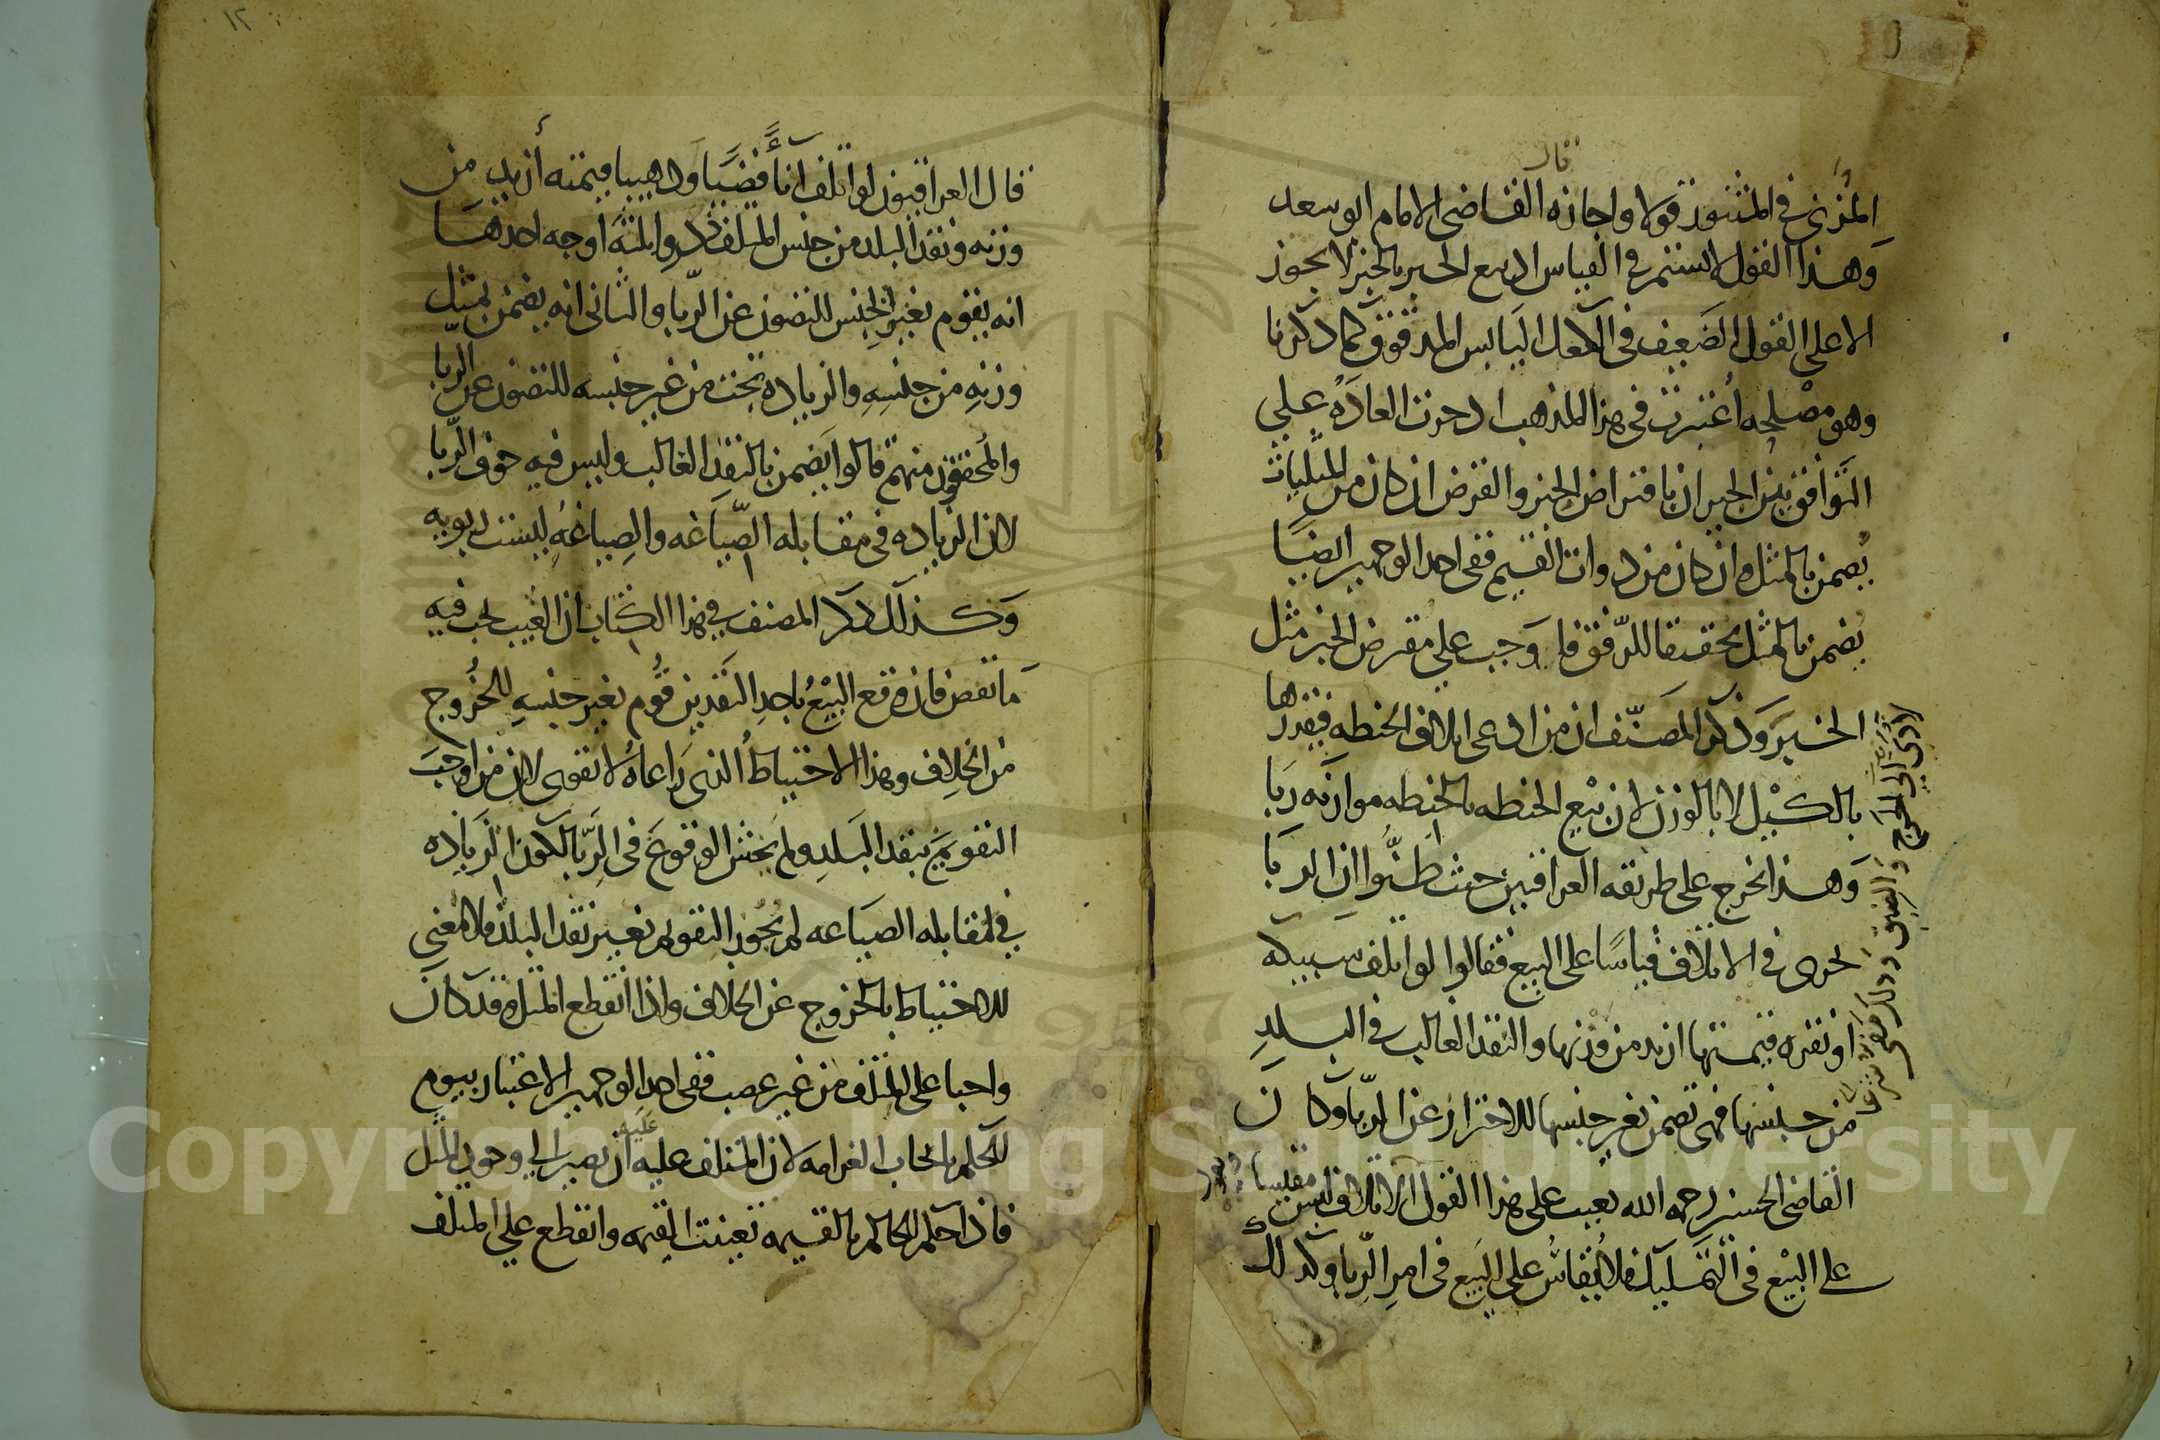 قال
المزني في المنثور قولا واجازه القاضي الامام ابو سعد
وهذا القول لا يستتم في القياس اذ بيع الخبز بالخبز لا يجوز
الا على القول الضعيف في الكعك اليابس المدقوق كما ذكرنا
وهو مصلحه اعتبرت في هذا المذهب اذ جرت العاده على
التوافق بين الجيران باقتراض الخبز والقرض ان كان من المثليات
يضمن بالمثل وان كان من ذوات القيم ففي احد الوجهين ايضا
يضمن بالمثل تحقيقا للرفق فاوجب على مقترض الخبز مثل
الخبز وذكر المصنف ان من ادعى اتلاف الحنطه فيقدرها
بالكيل لا بالوزن لان بيع الحنطه بالحنطه موازنه ربا
وهذا يخرج على طريقه العراقيين حيث ظنوا ان الربا
يجري في الاتلاف قياسا على البيع فقالوا لو اتلف سبيكه
او نقره قيمتها ازيد من وزنها والنقد الغالب في البلد
من جنسها فهي تضمن بغير جنسها للاحتراز عن الربا وكان
القاضي الحسين رحمه الله يعيب على هذا القول اذ الاتلاف ليس مقيسا
على البيع في التمليك فلا يقاس على البيع في امر الربا وكذلك
لادى الى الحرج والضيق
١٢
قال العراقيون لو اتلف اناء فضيا او ذهبيا قيمته أزيد من
وزنه ونقد البلد من جنس المتلف ذكروا ثلثه اوجه احدها
انه يقوم بغير الجنس للتصون عن الربا والثاني انه يضمن بمثل
وزنه من جنسه والزياده تجب من غير جنسه للتصون عن الربا
والمحققون منهم قالوا يضمن بالنقد الغالب وليس فيه خوف الربا
لان الزياده في مقابله الصياغه والصياغه ليست ربويه
وكذلك ذكر المصنف في هذا الكتاب ان العيب يجب فيه
ما نقص فان وقع البيع باحد النقدين قوم بغير جنسه للخروج
من الخلاف وهذا الاحتياط الذي راعاه لا يقوى لان من اوجب
التقويم بنقد البلد ولم يخش الوقوع في الربا لكون الزياده
في مقابله الصياغه لم يجوز التقويم بغير نقد البلد فلا معنى
للاحتياط بالخروج عن الخلاف واذا انقطع المثل وقد كان
واجبا على المتلف من غير غصب ففي احد الوجهين الاعتبار بيوم
الحكم بايجاب الغرامه لان للمتلف عليه أن يصبر الى وجود المثل
فاذا حكم الحاكم بالقيمه تعينت القيمه وانقطع على المتلف